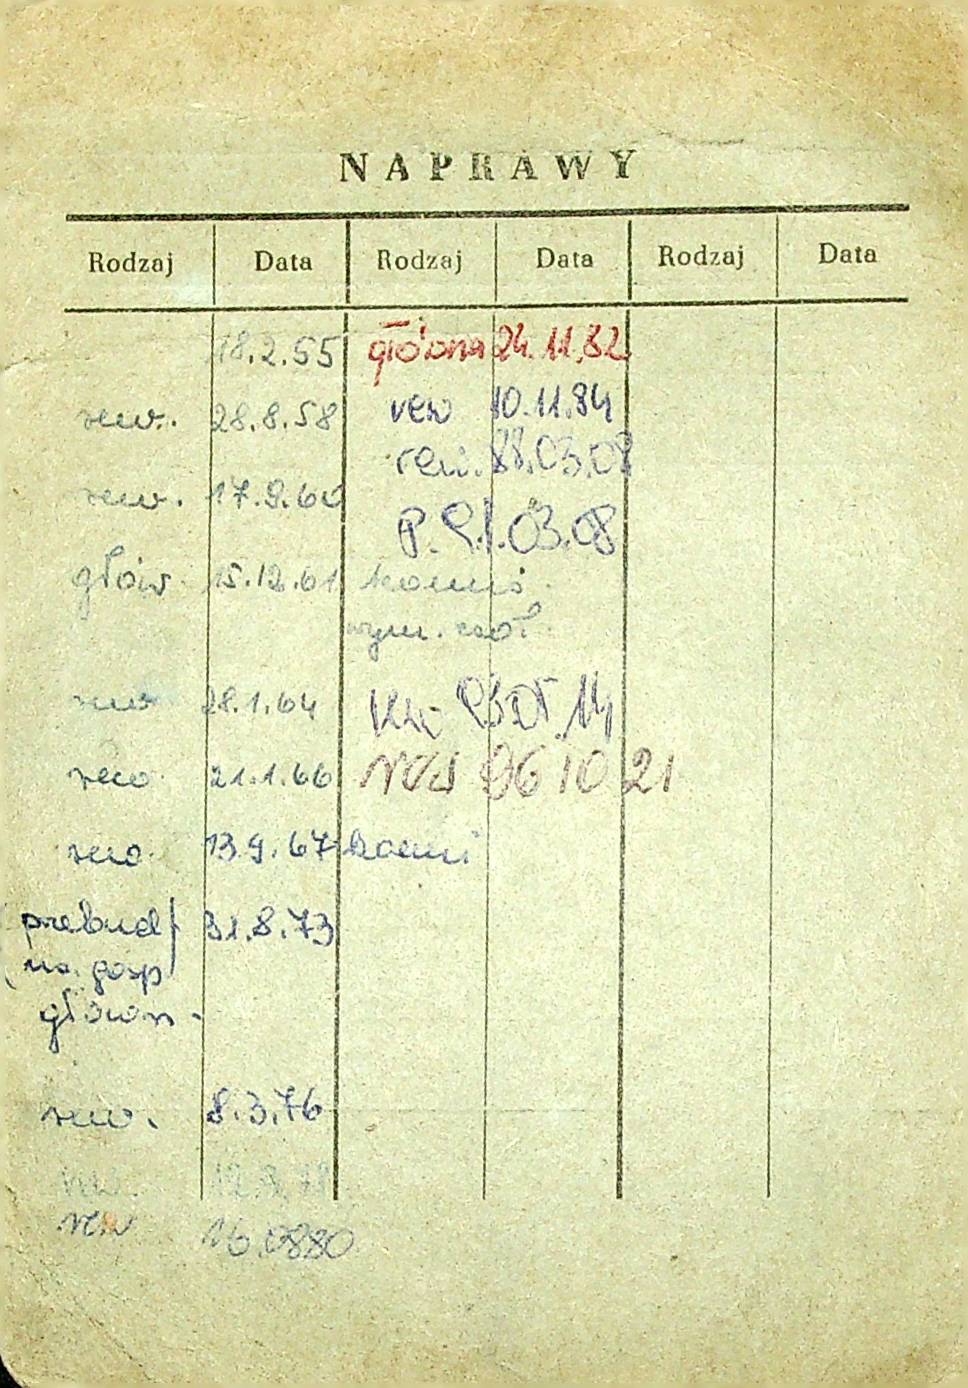 NAPRAWY
Rodzaj Data Rodzaj Data Rodzaj Data
18.2.55
rew. 28.8.58
rew. 17.9.60
głów. 15.12.61
rew 28.1.64
rew. 21.1.66
rew. 13.9.67
przebud
na. gosp
31.8.73
główn.
rew. 8.3.76
rew.
rew 16.0880
główna 24.11.82
rew 10.11.84
rew. 88.03.08
P. 91.03.08
wym.
rew 96 10 21